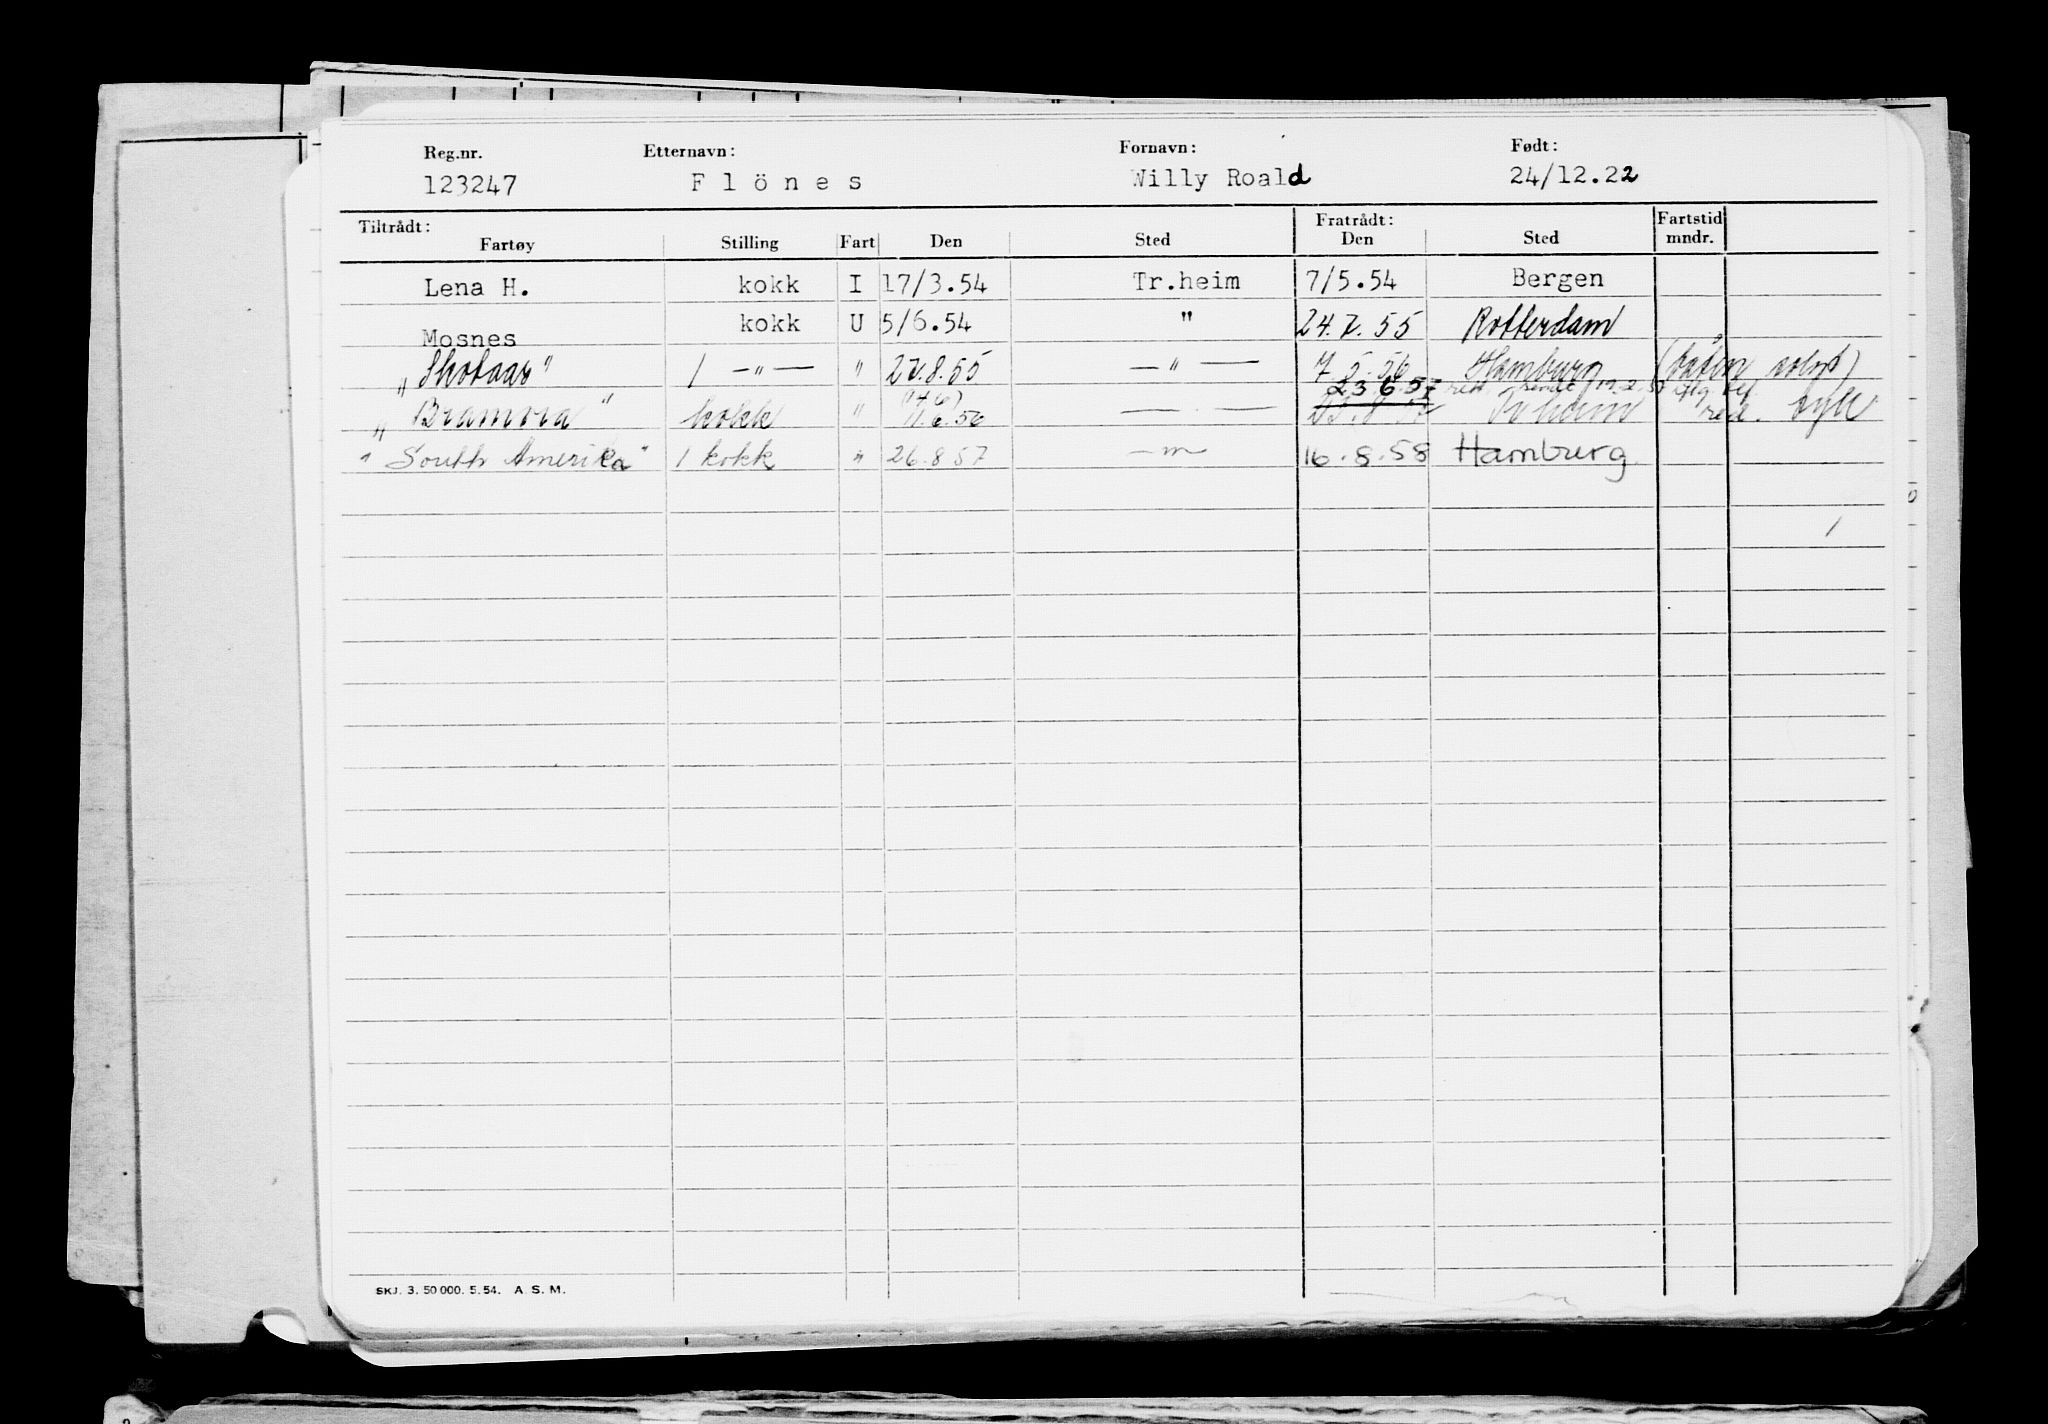 Reg.nr. Etternavn: Fornavn: Født:
123247 Flönes Willy Roald 24/12.22
Tiltrådt: Fratrådt: Fartstid
Fartøy Stilling Fart Den Sted Den Sted mndr.
Lena H. kokk I 17/3.54 Tr.heim 7/5.54 Bergen
Mosnes kokk U 5/6.54 " 24.7.55 Rotterdam
„Skotaas" 1 —„— " 27.8.55 —"— 7 5.56 Hamburg
(14/6) 23 6.57
„Bramora" kokk " 11.6.56 — . — Tr.heim
"South Amerika" 1 kokk " 26.8.57 —"— 16.8.58 Hamburg
SKJ. 3. 50 000. 5. 54. A. S. M.